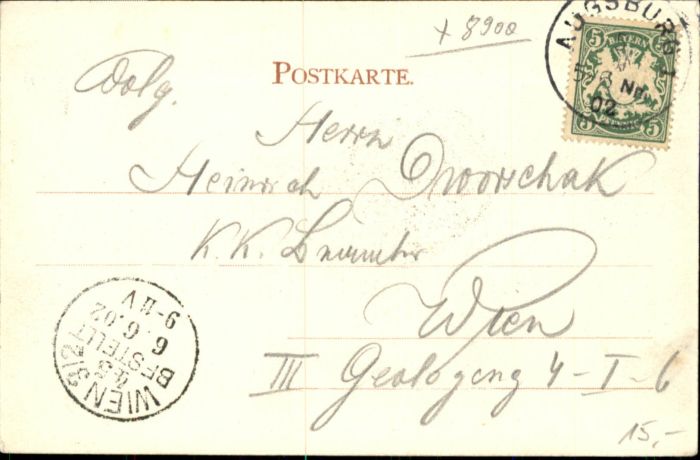 + 8900
AUGSBURG 1
5 BAYERN 5
Nm.
02
5 5
POSTKARTE.
Herrn
Heinrich Dworschak
K.K. Beamter
Wien
III Geologeng 4-I-6
WIEN 3/2
BESTELLT
6 6.02
9-11V
15,-